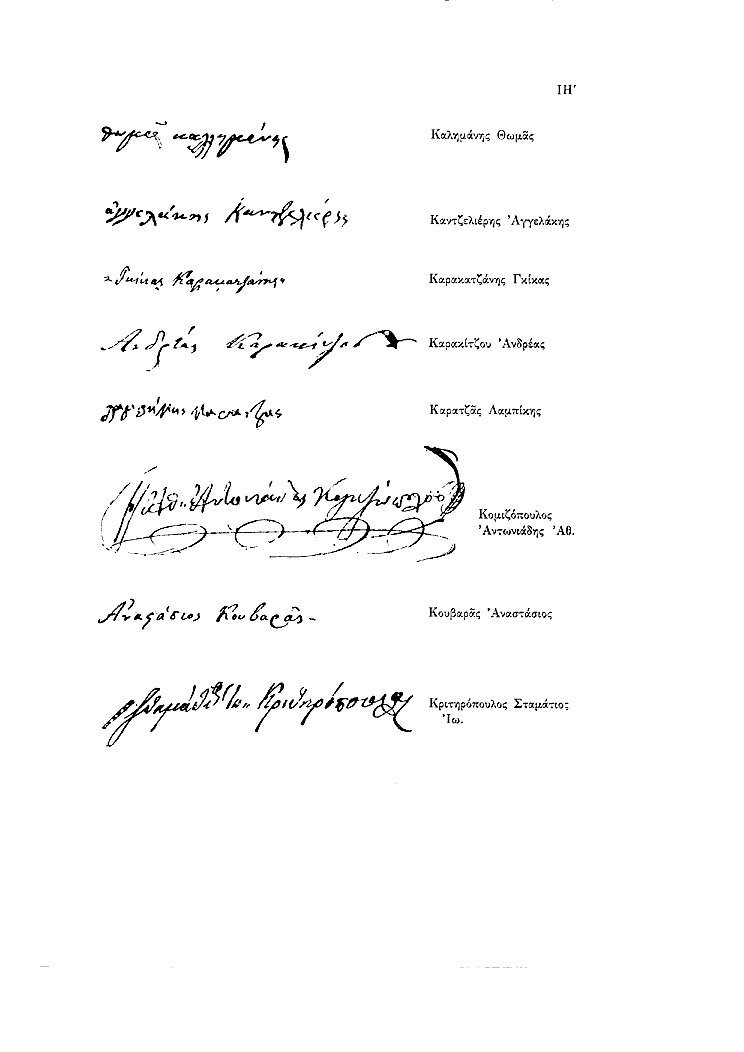 ΙΗ'
θωμᾶς καλλημάνης
Καλημάνης Θωμᾶς
ἀγγελάκης Καντζελιέρης
Καντζελιέρης Ἀγγελάκης
Γκίκας Καρακατζάνης
Καρακατζάνης Γκίκας
Ἀνδρέας Καρακίτζου
Καρακίτζου Ἀνδρέας
Καρατζᾶς Λαμπίκης
Ἀντωνιάδης Κομιζόπουλος
Κομιζόπουλος
Ἀντωνιάδης Ἀθ.
Ἀναστάσιος Κουβαρᾶς
Κουβαρᾶς Ἀναστάσιος
Κριτηρόπουλος
Κριτηρόπουλος Σταμάτιος
Ἰω.